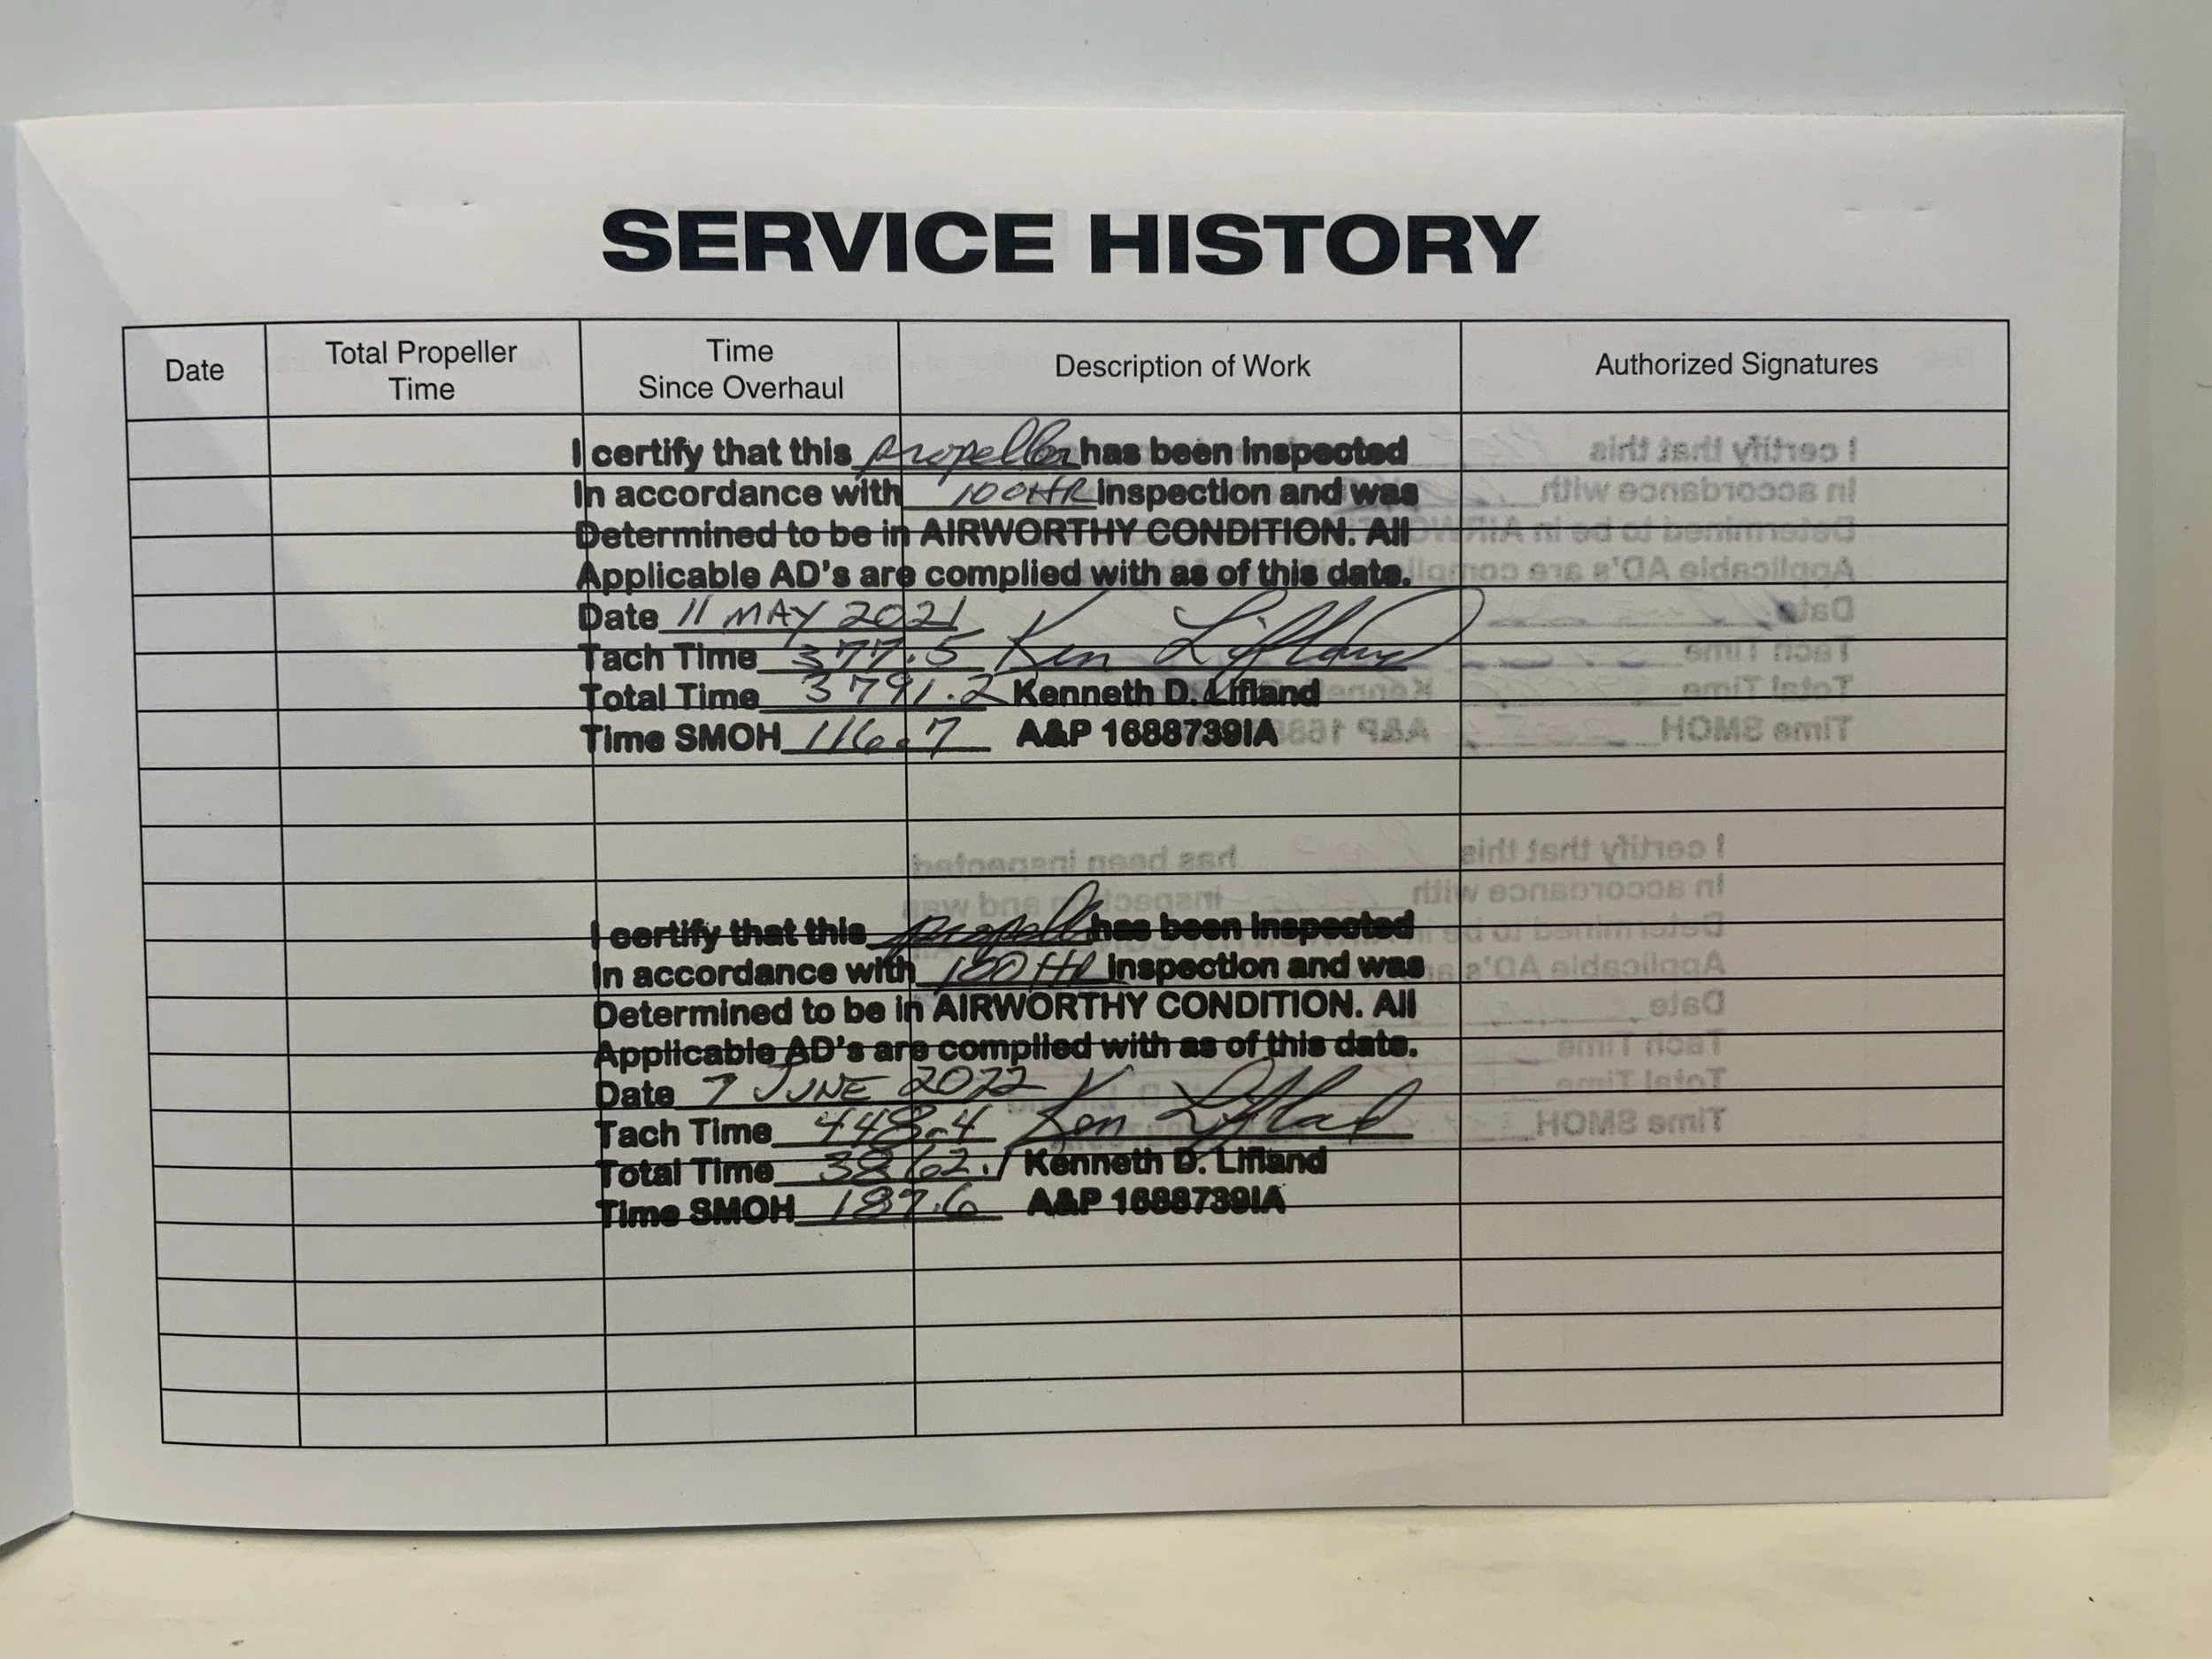 SERVICE HISTORY
Date
Total Propeller
Time
Time
Since Overhaul
Description of Work
Authorized Signatures
I certify that this propeller has been inspected
In accordance with 100HR inspection and was
Determined to be in AIRWORTHY CONDITION. All
Applicable AD's are complied with as of this date.
Date 11 MAY 2021
Tach Time 377.5 Ken Lifland
Total Time 3791.2 Kenneth D. Lifland
Time SMOH 116.7 A&P 1688739IA
I certify that this propell has been inspected
In accordance with 100 HR inspection and was
Determined to be in AIRWORTHY CONDITION. All
Applicable AD's are complied with as of this date.
Date 7 JUNE 2022
Tach Time 448.4 Ken Lifland
Total Time 3862.1 Kenneth D. Lifland
Time SMOH 187.6 A&P 1688739IA